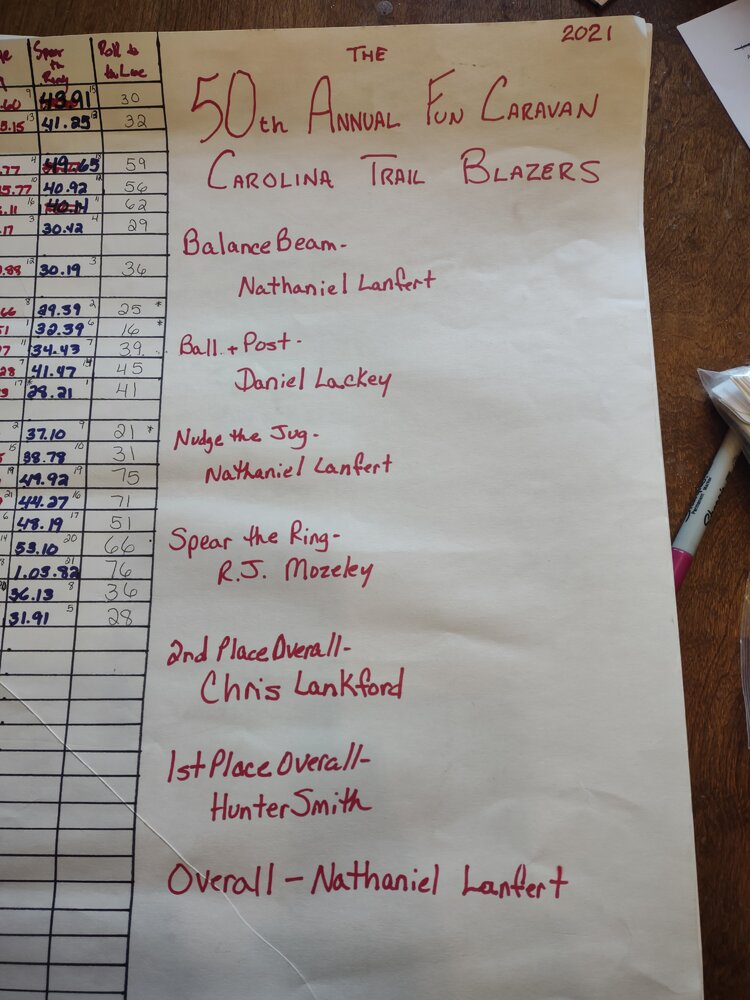 2021
THE
50th ANNUAL FUN CARAVAN
CAROLINA TRAIL BLAZERS
Balance Beam-
Nathaniel Lanfert
Ball + Post-
Daniel Lackey
Nudge the Jug-
Nathaniel Lanfert
Spear the Ring-
R.J. Mozeley
2nd Place Overall-
Chris Lankford
1st Place Overall-
Hunter Smith
Overall - Nathaniel Lanfert
Spear the Ring Roll to the Line
48.91 30
41.25 32
49.65 59
40.92 56
40.14 62
30.42 29
30.19 36
29.39 25 *
32.39 16 *
34.43 39
41.47 45
28.21 41
37.10 21 *
38.78 31
49.92 75
44.27 71
48.19 51
53.10 66
1.03.82 76
36.13 36
31.91 28